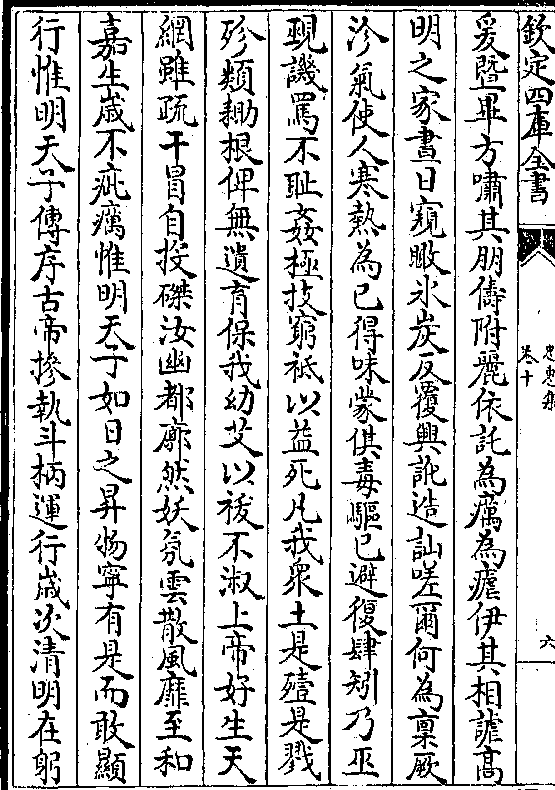 欽定四庫全書
忠惠集
卷十
六
爰暨畢方嘯其朋儔附麗依託為癘為瘧伊其相謔高
明之家晝日窺瞰氷炭反覆興訛造訕嗟爾何為稟厥
沴氣使人寒熱為已得味蒙倛毒驅已避復肆矧乃巫
覡譏罵不耻姦極技窮祗以益死凡我衆士是殪是戮
殄類鋤根俾無遺育保我幼艾以祓不淑上帝好生天
網雖疏干冒自投磔汝幽都廓然妖氛雲散風靡至和
嘉生歳不疵癘惟明天子如日之昇物寧有是而敢顯
行惟明天子傳存古帝摻執斗柄運行歳次清明在躬